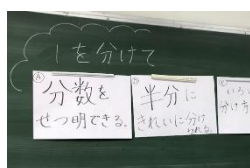 1を分けて
Ⓐ
分数を
せつ明できる。
半分に
きれいに分け
られる。
いろ
分け方